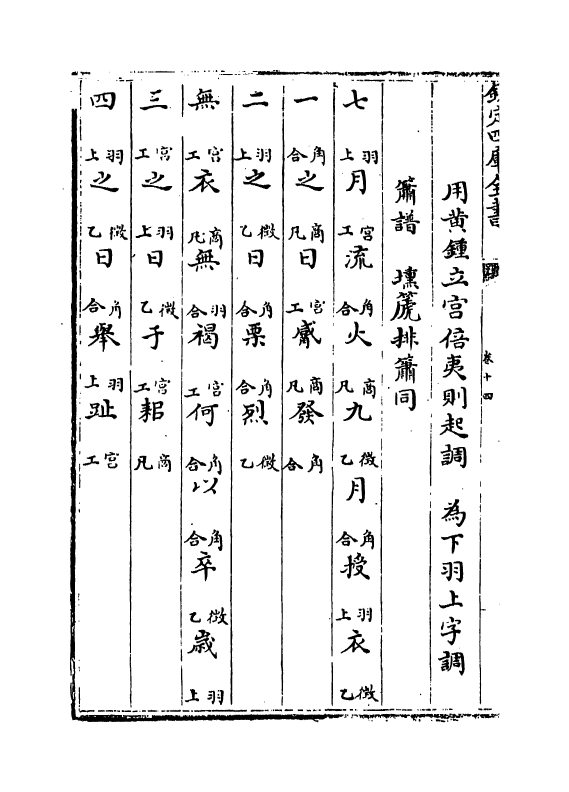 欽定四庫全書
卷十四
用黄鍾立宫倍夷則起調 為下羽上字調
簫譜 壎篪排簫同
七羽上月宫工流角合火商凡九徵乙月角合授羽上衣徵乙
一角合之商凡日宫工觱商凡發角合
二羽上之徵乙日角合栗角合烈徵乙
無宫工衣商凡無羽合褐宫工何角合以角合卒徵乙歳羽上
三宫工之羽上日徵乙于宫工耜商凡
四羽上之徵乙日角合舉羽上趾宫工